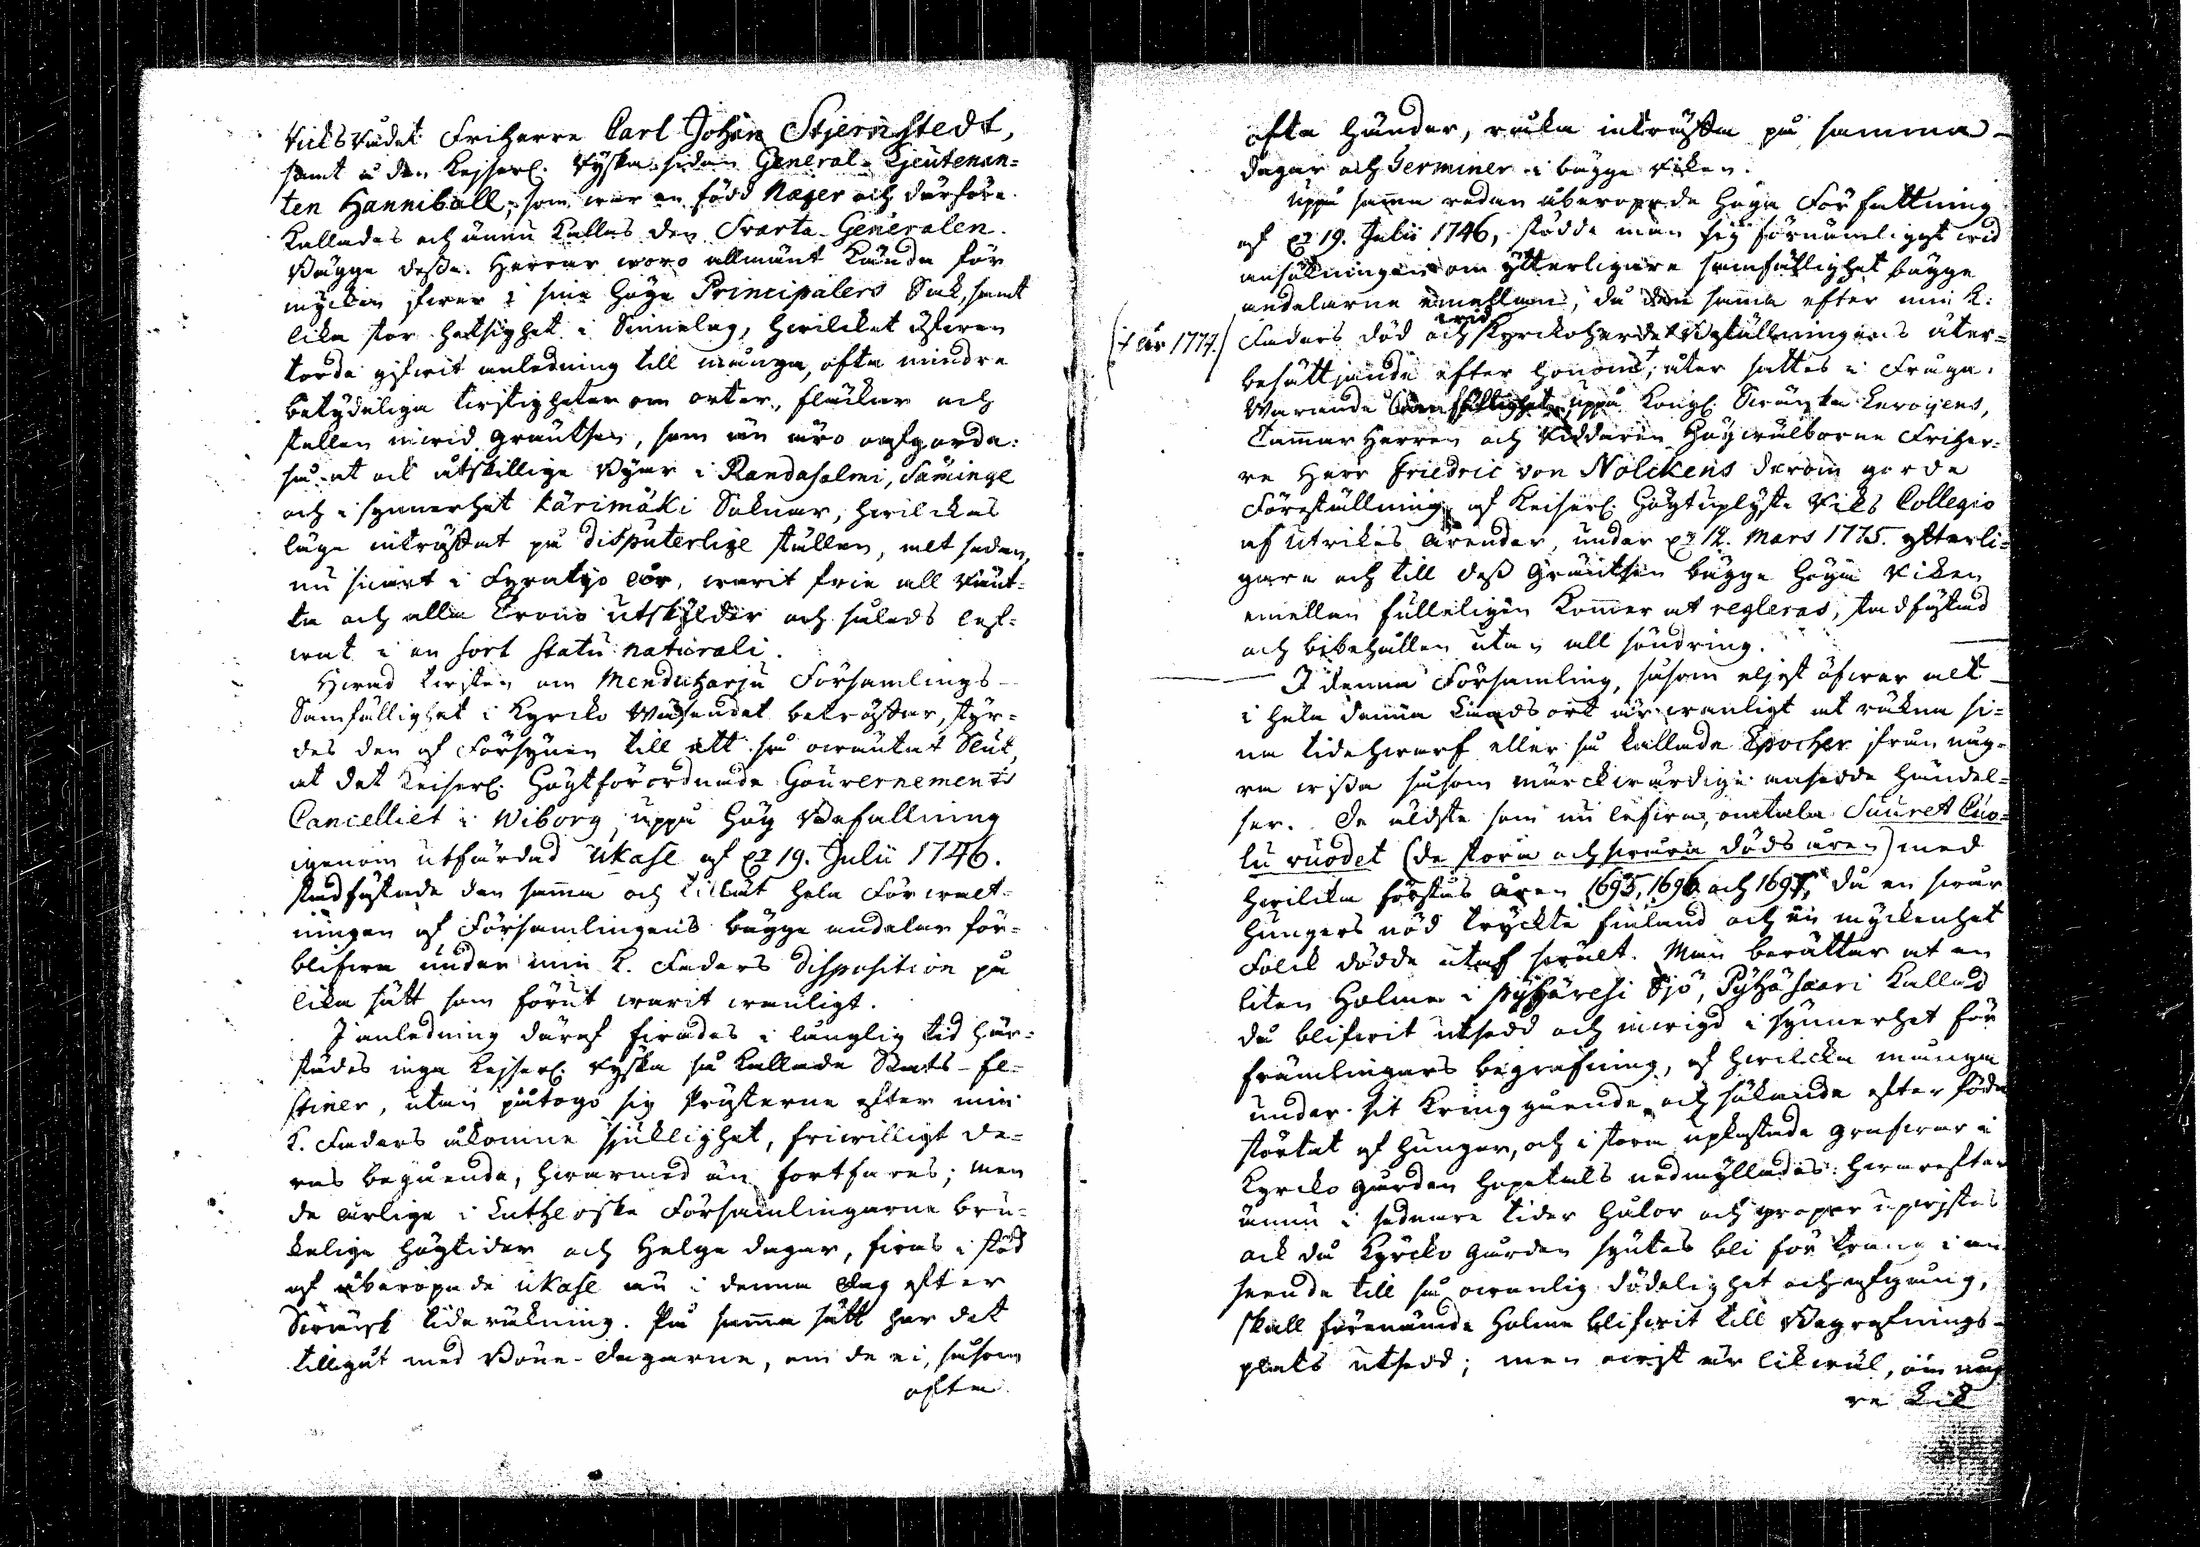 Riksrådet Friherre Carl Johan Stjernstedt,
samt å den Kejserl. Ryska sidan General-Lieutenan=
ten Hanniball, som war en född Neger och därföre
kallades och ännu kallas den Svarta Generalen.
Bägge desse Herrar woro allmänt kände för
mycken ifwer i sine höge Principalers Sak, samt
lika stor hetsighet i Sinnelag, hwilcket äfwen
torde gifwit anledning till många, ofta mindre
betydeliga twistigheter om orter, fläckar och
ställen inwid gräntsen, som än äro oafgorda:
så at ock åtskillige Byar i Randasalmi, Säminge
och i synnerhet Kärimäki Soknar, hwilckas
läge inträffat på disputerlige ställen, alt sedan,
nu snart i Fyratijo år, warit frie all Rän=
ta och alla Crono utskylder och således lef=
wat i en sort statu naturali.
Hwad twisten om Menduharju Församlings
Samfällighet i Kyrcko Wäsendet beträffar, styr=
des den af Försynen till ett så owäntat Slut,
at det Keiserl. Högtförordnade Gouvernements
Cancelliet i Wiborg, uppå hög Befallning
igenom utfärdad Ukase af d. 19. Julii 1746.
stadfästade den samma och tillät hela Förwalt=
ningen af Församlingens bägge andelar för=
blifwa under min K. Faders Disposition på
lika sätt som förut warit wanligt.
I anledning däraf firades i långlig tid här=
städes inga Kejserl. Ryska så kallade Stats-Fe=
stiner, utan påtogo sig Prästerne efter min
K. Faders åkomne sjuklighet, friwilligt de=
ras begående, hwarmed än fortfares; men
de årlige i Lutherske Församlingarne bru=
kelige högtider och Helge dagar, firas i stöd
af åberopade Ukase än i denna dag efter
Swänsk tideräkning. På samma sätt har det
tillgåt med Böne-dagarne, om de ei, såsom
ofta
ofta händer, råka inträffa på samma
dagar och Terminer i bägge Riken.
Uppå samma redan åberopade höga Författning
af d. 19. Julii 1746, stödde man sig förnämligast wid
ansökningen om ytterligare samfällighet bägge
andelarne emellan, då den samma efter min K.
Faders död och wid Kyrckoherde Beställningens åter=
(† år 1774.)
besättjande efter honom†, åter sattes i Fråga.
Warande uppå Kongl. Swänska Envoyens,
Cammar Herren och Riddaren Högwälborne Friher=
re Herr Friedric von Nolckens derom gorde
Föreställning, af Keiserl. Högtuplyste Riks Collegio
af Utrikes Ärender, under d. 12. Mars 1775. ytterli=
gare och till dess Gräntsen bägge höga Riken
emellan fulleligen kommer at regleras, stadfästad
och bibehållen utan all söndring.
I denna Församling, såsom eljest öfwer alt
i hela denna Landsort är wanligt at räkna si=
na tidehwarf eller så kallade Epocher ifrån någ=
ra wissa såsom märckwärdige ansedde händel=
ser. De äldste som nu lefwa, omtala Suuret Cuo=
lu vuodet (de stora och swåra döds åren) med
hwilcka förstås åren 1695, 1696 och 1697, då en swår
hungers nöd tryckte Finland och en myckenhet
Folck dödde utaf swält. Man berättar at en
liten Holme i Pyhäresi Sjö, Pyhäsaari kallad
då blifwit utsedd och inwigd i synnerhet för
främlingars begrafning, af hwilcka många
under sit kring gående och sökande efter föda
störtat af hunger, och i stora upkastade grafwar i
Kyrcko gården hopetals nedmyllades: hwarefter
ännu i sednare tider hålor och gropar upristes
ock då Kyrcko gården syntes bli för trång i an=
seende till så owanlig dödelighet och afgång,
skall förenämde Holme blifwit till Begrafnings-
plats utsedd; men wist är likwäl, om någ
ra lik